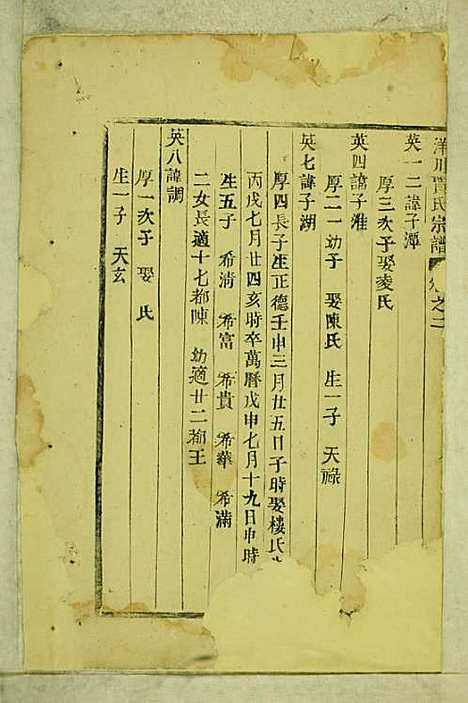 洋川賈氏宗譜 卷之二
英一二諱子潭
厚三次子娶凌氏
英四諱子淮
厚二一幼子 娶陳氏 生一子 天祿
英七諱子湖
厚四長子生正德壬申三月廿五日子時娶樓氏生
丙戌七月廿四亥時卒萬曆戊申七月十九日申時
生五子 希清 希富 希貴 希華 希滿
二女長適十七都陳 幼適廿二都王
英八諱調
厚一次子 娶 氏
生一子 天玄